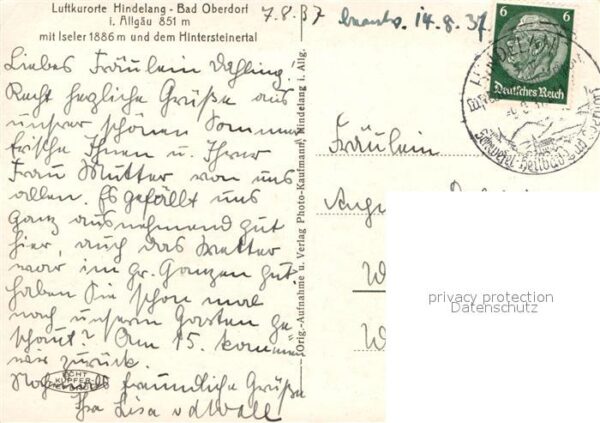 Luftkurorte Hindelang - Bad Oberdorf
i. Allgäu 851 m
mit Iseler 1886 m und dem Hintersteinertal
7.8.37
14.8.37
Liebes Fräulein Dehling!
Recht herzliche Grüße aus
unsrer schönen Sommer
frische Ihnen u. Ihrer
Frau Mutter von uns
allen. Es gefällt uns
ganz ausnehmend gut
hier, auch das Wetter
war im gr. Ganzen gut.
Haben Sie schon mal
nach unserm Garten ge
schaut? Am 15. kommen
wir zurück.
Nochmals freundliche Grüße
Ihre Lisa vdWall
ECHT
KUPFER-
Orig.-Aufnahme u. Verlag Photo-Kaufmann, Hindelang i. Allg.
6 6
Deutsches Reich
HINDELANG
Schwefel-Heilbad
Fräulein
W
W
privacy protection
Datenschutz